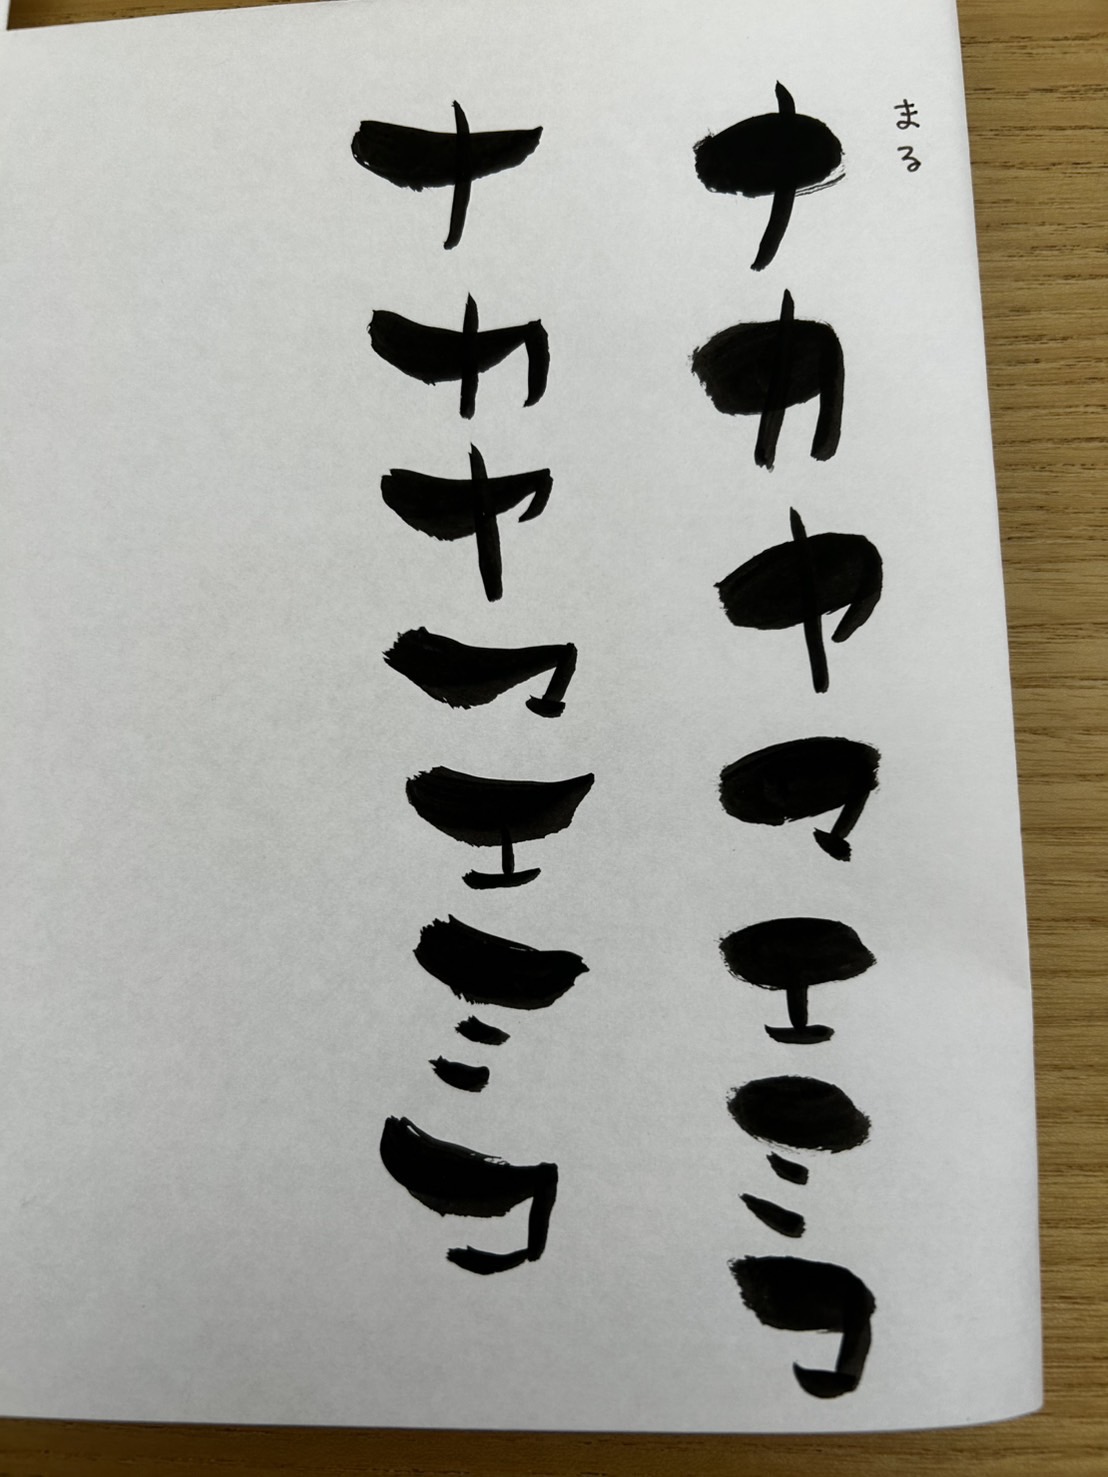 まる
ナカヤマエミコ
ナカヤマエミコ